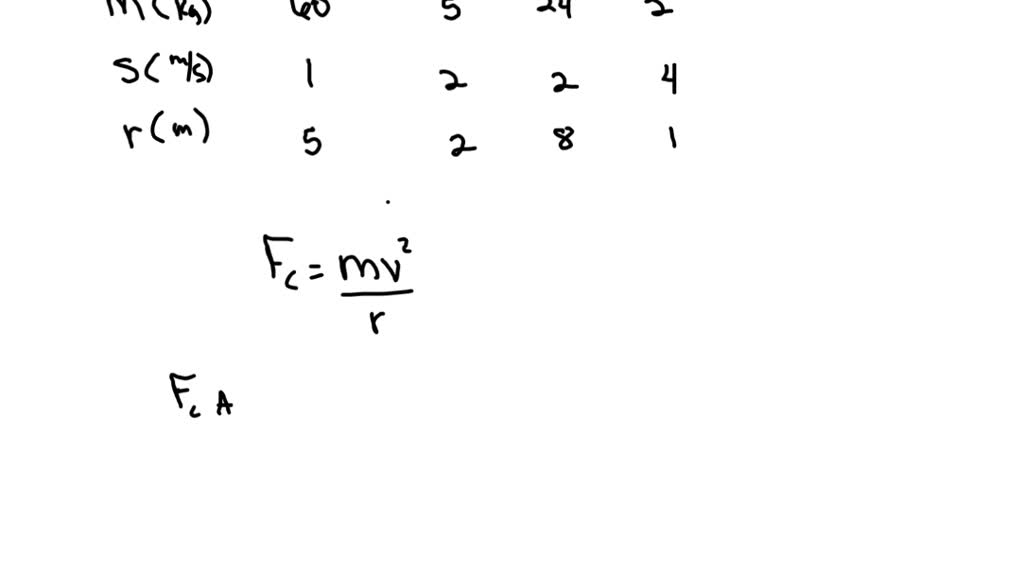 m (kg) 60 5 24 2
S (m/s) 1 2 2 4
r (m) 5 2 8 1
Fc = mv²
r
Fc A